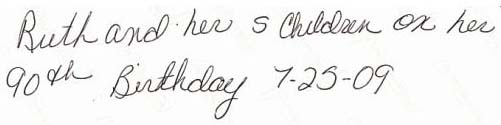 Ruth and her 5 Children on her
90th Birthday 7-25-09